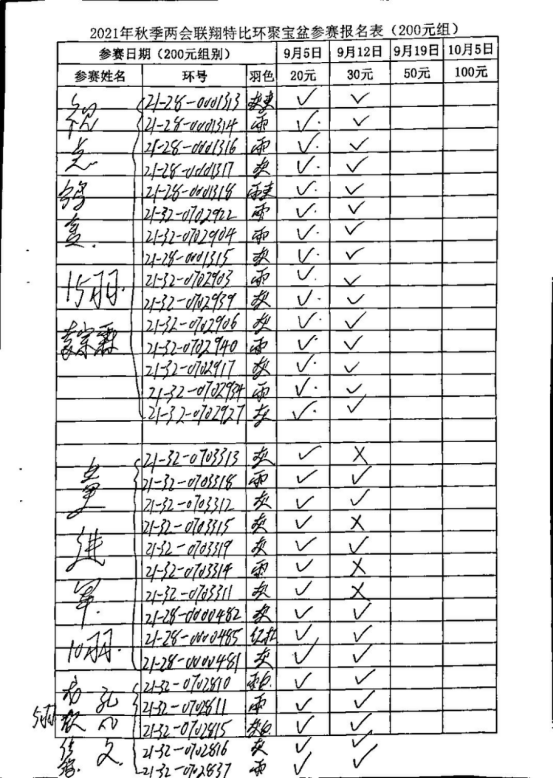 2021年秋季两会联翔特比环聚宝盆参赛报名表（200元组）
参赛日期（200元组别） 9月5日 9月12日 9月19日 10月5日
参赛姓名 环号 羽色 20元 30元 50元 100元
21-28-0001313 ✓ ✓
21-28-0001314 雨 ✓ ✓
21-28-0001316 雨 ✓ ✓
21-28-0001317 灰 ✓ ✓
21-28-0001318 ✓ ✓
21-32-0702922 雨 ✓ ✓
21-32-0702904 雨 ✓ ✓
21-28-0001315 灰 ✓ ✓
15羽 21-32-0702903 雨 ✓ ✓
21-32-0702939 灰 ✓ ✓
21-32-0702906 灰 ✓ ✓
21-32-0702940 雨 ✓ ✓
21-32-0702917 灰 ✓ ✓
21-32-0702934 雨 ✓ ✓
21-32-0702927 灰 ✓ ✓
21-32-0703313 灰 ✓ ×
21-32-0703318 雨 ✓ ✓
21-32-0703312 灰 ✓ ✓
21-32-0703315 灰 ✓ ×
进 21-32-0703319 灰 ✓ ✓
21-32-0703314 雨 ✓ ×
军 21-32-0703311 灰 ✓ ×
21-28-0000482 灰 ✓ ✓
10羽 21-28-0000485 ✓ ✓
21-28-0000481 灰 ✓ ✓
21-32-0702810 ✓ ✓
21-32-0702811 雨 ✓ ✓
5羽 21-32-0702815 ✓ ✓
21-32-0702816 灰 ✓ ✓
21-32-0702837 雨 ✓ ✓